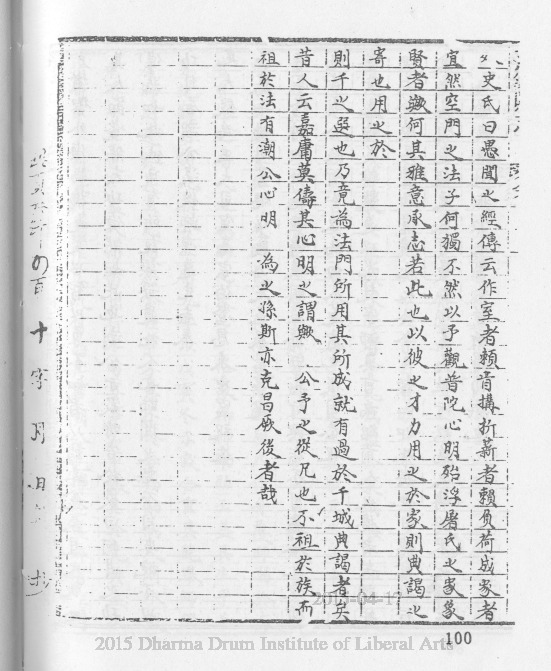 史氏曰愚聞之經傳云作室者賴肯搆折薪者賴負荷成家者
宜然空門之法子何獨不然以予觀普陀心明殆浮屠氏之家
賢者歟何其雅意承志若此也以彼之才力用之於家則典謁之
寄也用之於
則千之選也乃竟為法門所用其所成就有過於千城典謁者矣
昔人云嘉庸莫儔其心明之謂歟 公予之從兄也不祖於族而
祖於法有潮公心明 為之孫斯亦克昌厥後者哉
十 字 月 日
2015 Dharma Drum Institute of Liberal Arts
100